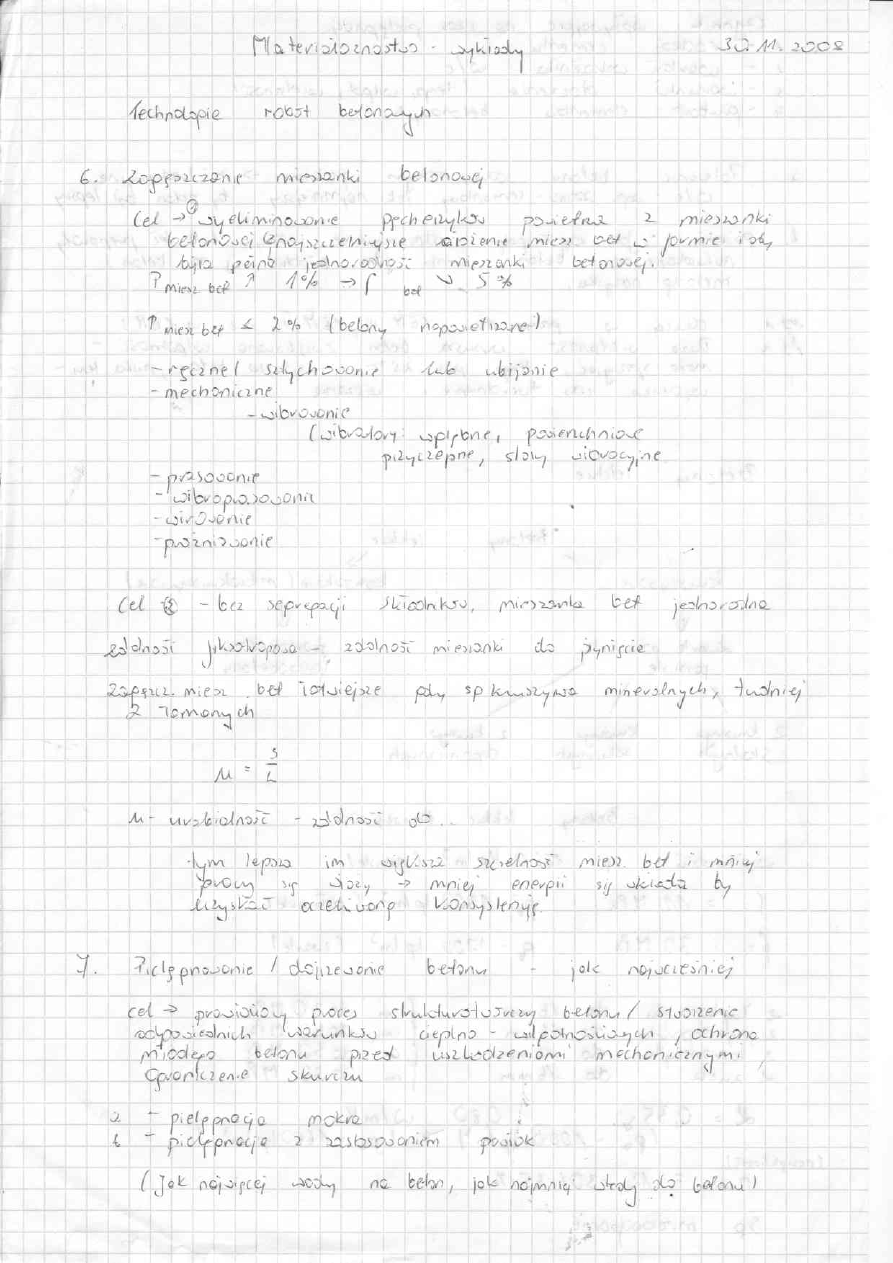 Materiałoznastwo - wykłady 30.11.2008
Technologie robót betonowych
6. Zagęszczanie mieszanki betonowej
Cel → wyeliminowanie pęcherzyków powietrza z mieszanki
betonowej najszczelniejsze ułożenie miesz bet w formie i aby
była pełna jednorodność mieszanki betonowej.
↑ miesz bet ↗ 1% → f bet ↘ 5%
↑ miesz bet ≤ 2% (betony napowietrzane)
- ręczne ( sztychowanie lub ubijanie
- mechaniczne
- wibrowanie
(wibratory: wgłębne, powierzchniowe
przyczepne, stoły wibracyjne
- prasowanie
- wibroprasowanie
- wirowanie
- próżniowanie
Cel - bez segregacji składników, mieszanka bet jednorodna
zdolność - zdolność mieszanki do płynięcia
Zagęszcz. miesz bet łatwiejsze gdy sp kruszywa mineralnych, trudniej
z łamanych
μ = s/L
μ - urabialność - zdolność do..
tym lepsza im większa szczelność miesz. bet i mniej
pracy się włoży → mniej energii się wkłada by
uzyskać oczekiwaną konsystencję.
7. Pielęgnowanie / dojrzewanie betonu - jak najwcześniej
cel → prawidłowy proces strukturotwórczy betonu / stworzenie
odpowiednich warunków cieplno - wilgotnościowych, ochrona
młodego betonu przed uszkodzeniami mechanicznymi,
Ograniczenie skurczu
a - pielęgnacja mokra
b - pielęgnacja z zastosowaniem powłok
(Jak najwięcej wody na beton, jak najmniej wody do betonu)